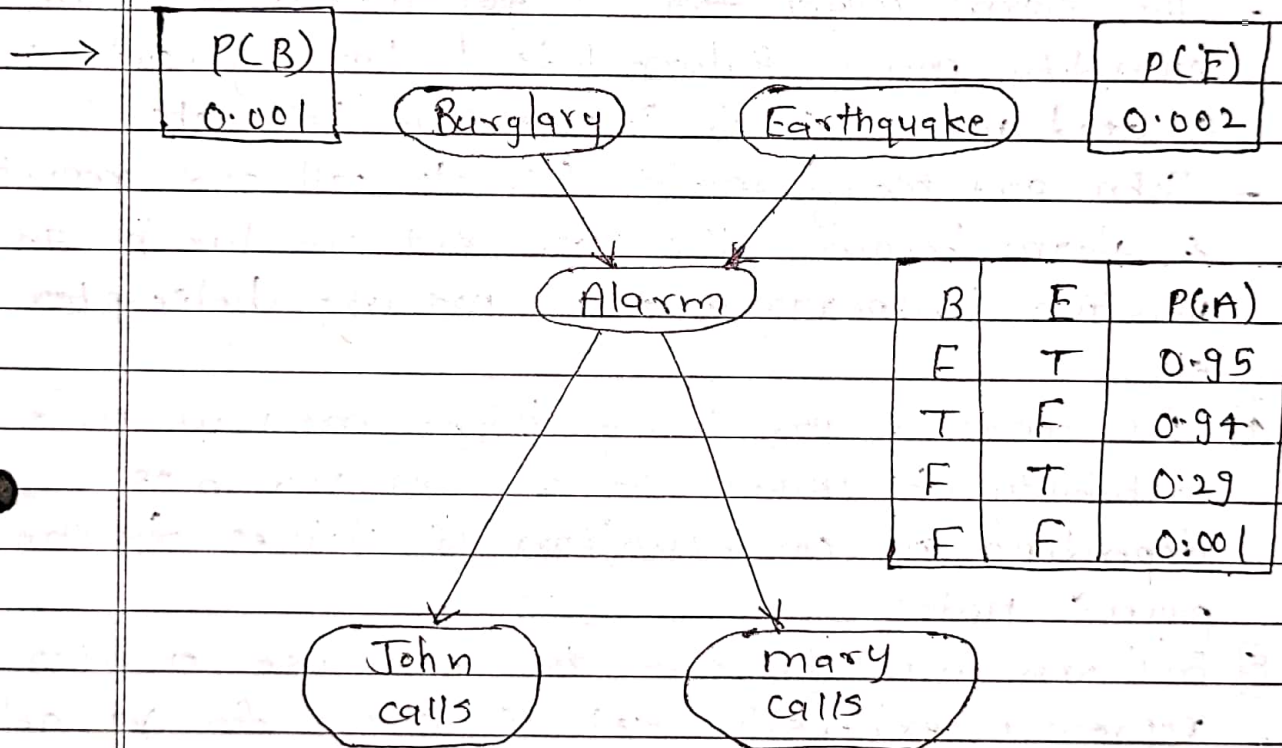 → P(B) P(E)
0.001 Burglary Earthquake 0.002
Alarm
B E P(A)
E T 0.95
T F 0.94
F T 0.29
F F 0.001
John mary
calls calls